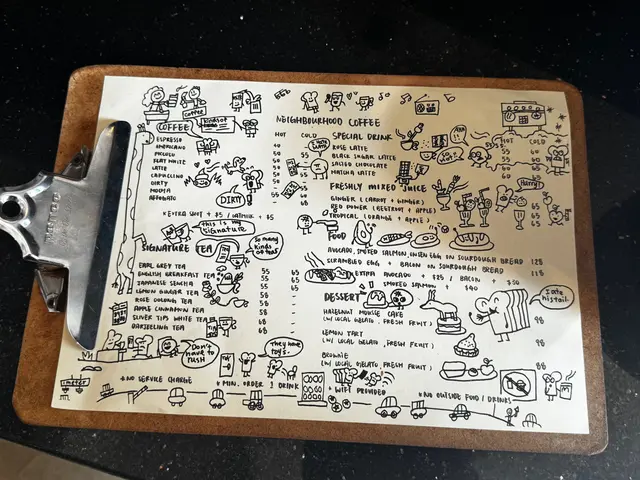 NEIGHBOURHOOD COFFEE
Coffee
COFFEE
HOT COLD
ESPRESSO
AMERICANO
PICCOLO
FLAT WHITE
LATTE
CAPUCCINO
DIRTY
MOCHA
AFFOGATO
DIRTY
* EXTRA SHOT + $5 / OATMILK + $5
This is my signature
So many kinds of tea!
SIGNATURE TEA
EARL GREY TEA 55 65
ENGLISH BREAKFAST TEA 55 65
JAPANESE SENCHA 55
LEMON GINGER TEA 58
ROSE OOLONG TEA 58
APPLE CINNAMON TEA 68
SLIVER TIPS WHITE TEA 68
DARJEELING TEA 68
Don't have to rush
They have toys.
SPECIAL DRINK
HOT COLD
ROSE LATTE
BLACK SUGAR LATTE
SALTED CHOCOLATE
MATCHA LATTE
FRESHLY MIXED JUICE
GINGER (CARROT + GINGER) 65
RED POWER (BEETROOT + APPLE) 65
TROPICAL (ORANGE + APPLE) 65
FOOD
AVOCADO, SMOKED SALMON, ONSEN EGG ON SOURDOUGH BREAD 128
SCRAMBLED EGG + BACON ON SOURDOUGH BREAD 118
EXTRA AVOCADO + $25 / BACON + $30
SMOKED SALMON + $40
DESSERT
I ate his tail.
HAZELNUT MOUSSE CAKE
(W/ LOCAL GELATO, FRESH FRUIT) 98
LEMON TART
(W/ LOCAL GELATO, FRESH FRUIT) 98
BROWNIE
(W/ LOCAL GELATO, FRESH FRUIT) 88
* NO SERVICE CHARGE
* MIN. ORDER 1 DRINK
* WIFI PROVIDED
* NO OUTSIDE FOOD / DRINKS